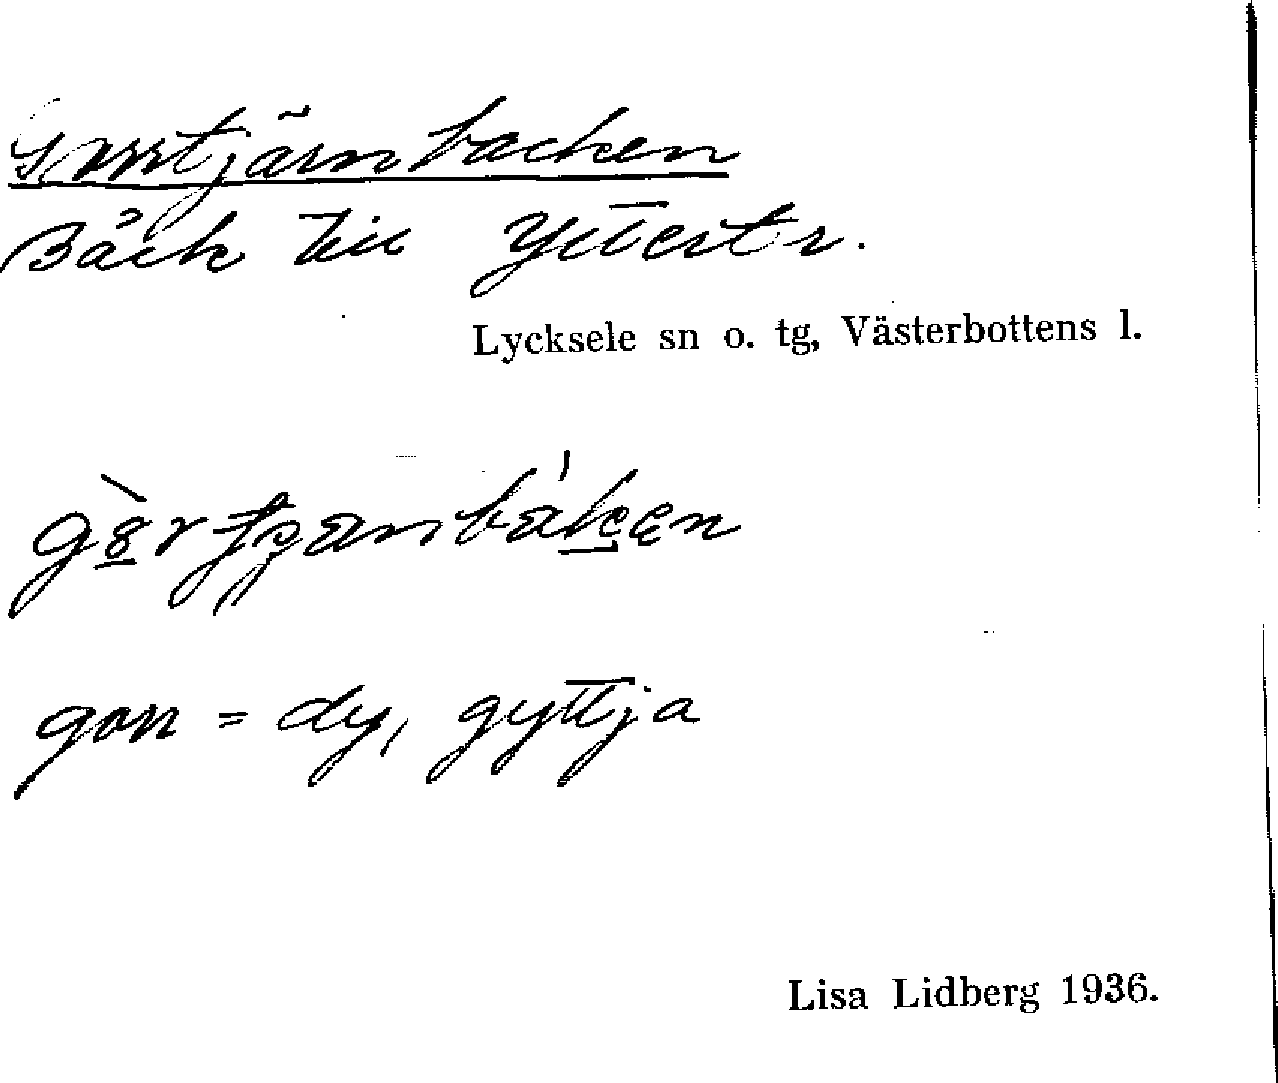 Gorrtjärnbäcken
Bäck till Yttertr.
Lycksele sn o. tg, Västerbottens l.
gorr = dy, gyttja
Lisa Lidberg 1936.